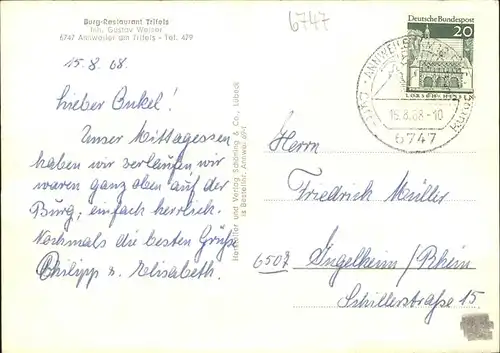 6747
Burg-Restaurant Trifels
Inh. Gustav Weiser
6747 Annweiler am Trifels - Tel. 679
15.8.68.
Lieber Onkel!
Unser Mittagessen
haben wir verlaufen, wir
waren ganz oben auf der
Burg, einfach herrlich.
Nochmals die besten Grüße
Philipp u. Elisabeth.
Hersteller und Verlag Schöning & Co., Lübeck
Deutsche Bundespost
20
ANNWEILER
15.8.68-10
6747
Herrn
Friedrich Müller
6507 Ingelheim/Rhein
Schillerstraße 15